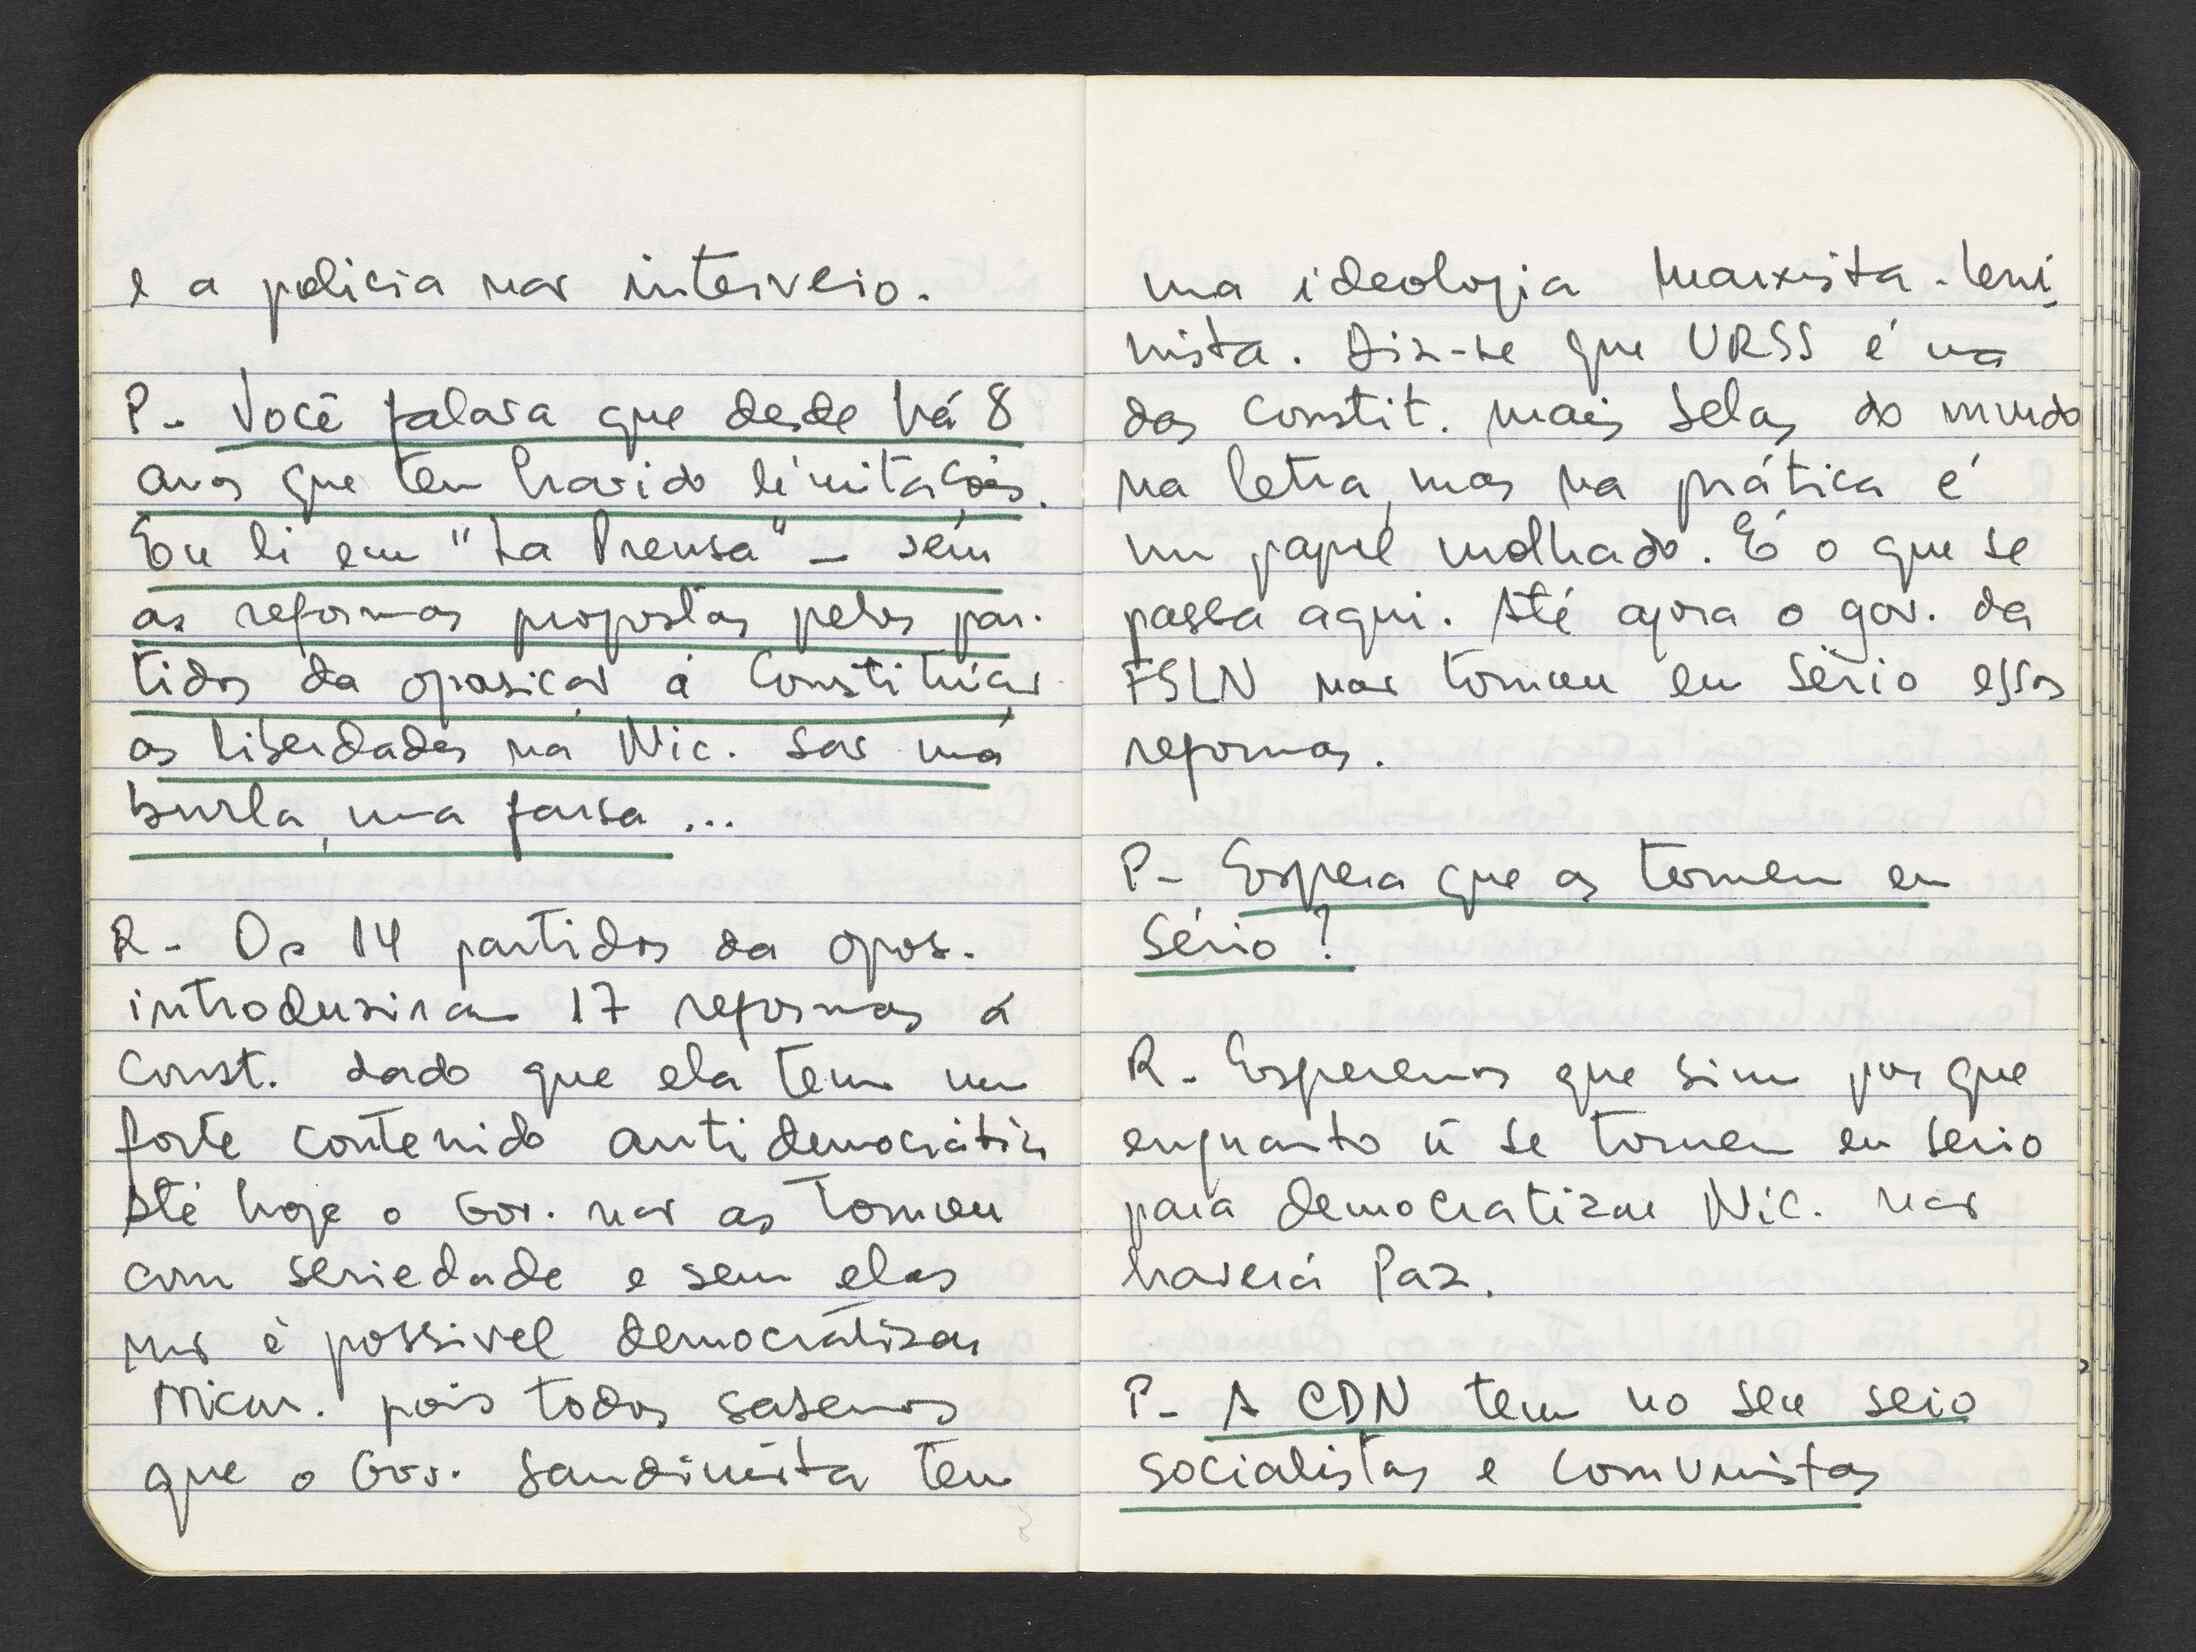 e a policia não interveio.
P- Você falava que desde há 8
anos que tem havido limitações.
Eu li em "La Prensa" - sem
as reformas propostas pelos par-
tidos da oposição á Constituição
as liberdades na Nic. são uma
burla, uma farsa...
R- Os 14 partidos da opos.
introduziram 17 reformas á
Const. dado que ela tem um
forte contenido antidemocrático
Até hoje o Gov. não as tomou
com seriedade e sem elas
não é possivel democratizar
Nicar. pois todos sabemos
que o Gov. Sandinista tem
uma ideologia marxista-leni
nista. Diz-se que URSS é uma
das Constit. mais belas do mundo
na letra, mas na prática é
um papel molhado. É o que se
passa aqui. Até agora o gov. da
FSLN não tomou em sério essas
reformas.
P- Espera que as tomem em
sério?
R- Esperemos que sim porque
enquanto ñ se tomem em serio
para democratizar Nic. não
haverá Paz.
P- A CDN tem no seu seio
socialistas e comunistas